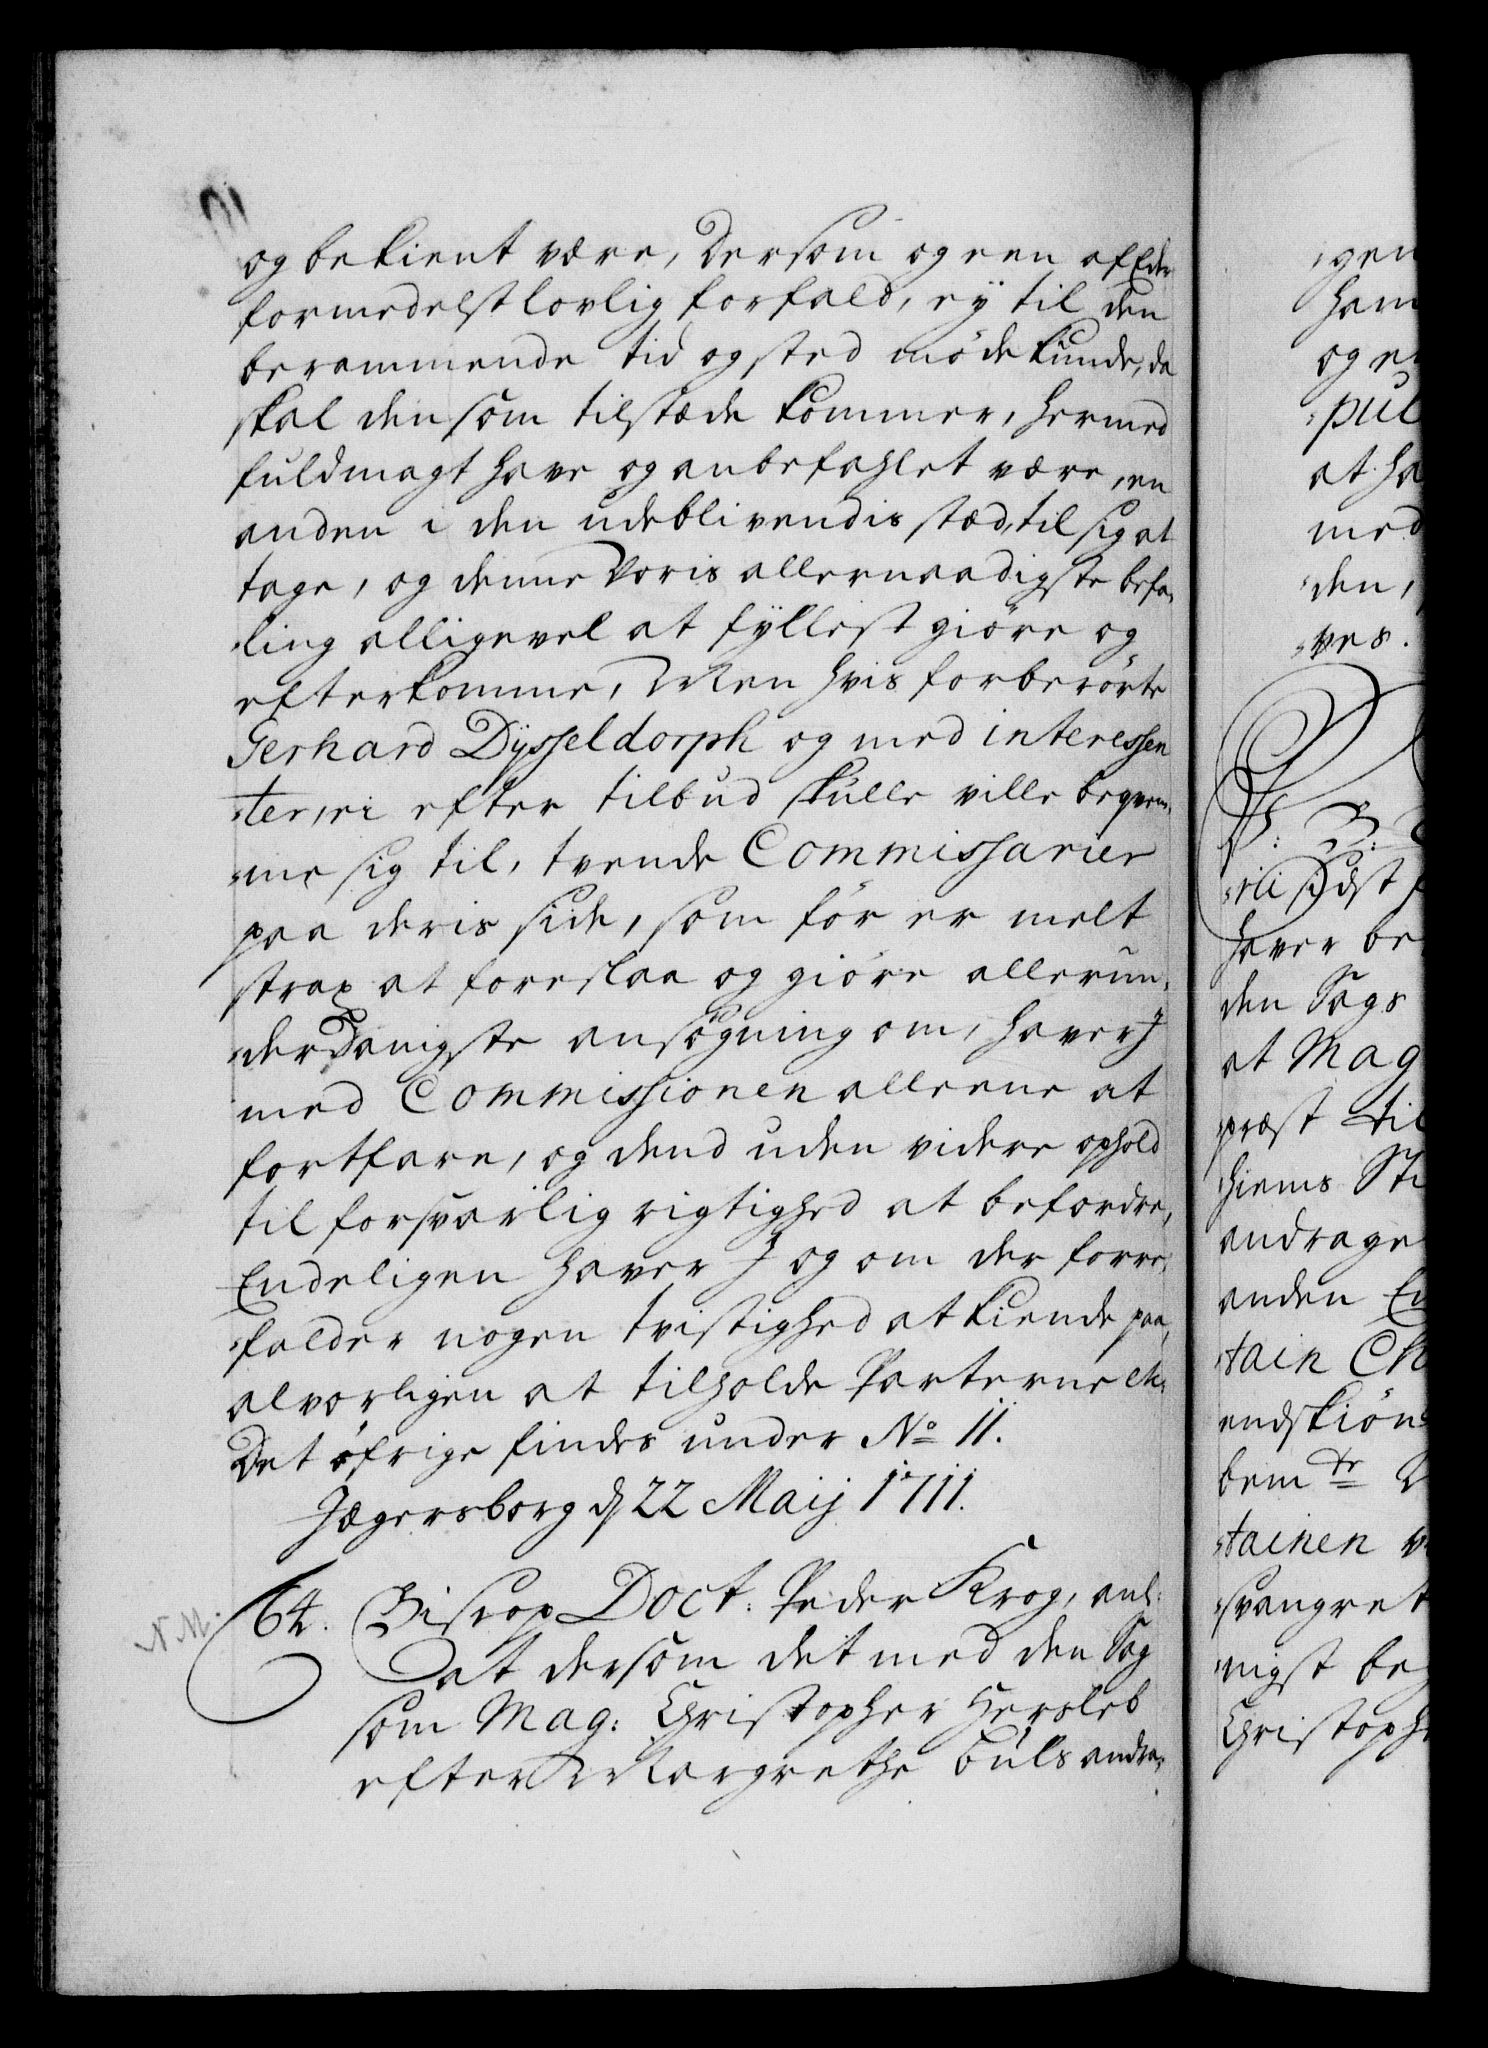 og bekient være, Dersom og een af Eder
formedelst lovlig forfald, ey til den
berammende tid og sted møde kunde, da
skal den som tilstæde kommer, hermed
fuldmagt have og anbefahlet være, en
anden i den udeblivendis stæd, til sig at
tage, og denne Voris allernaadigste befa„
„ling alligevel at fyllest giøre og
efterkomme, Men hvis forberørte
Gerhard Dysseldorph og med interessen
„ter, ei efter tilbud skulle ville beqvem„
„me sig til, tvende Commissarier
paa deris side, som før er melt
strax at foreslaa og giøre allerun„
„derdanigste ansøgning om, haver J
med Commissionen alleene at
fortfare, og dend uden videre ophold
til forsvarlig rigtighed at befordre,
Endeligen haver J og om der forre„
„falder nogen tvistighed at kiende paa,
alvorligen at tilholde Parterne etc.
Det øfrige findes under No 11.
Jægersborg d 22 Maij 1711.
N M.
64. Biscop Doct. Peder Krog, anl:
at dersom det med den Sag
som Mag: Christopher Hersleb
efter Margrethe Buls andra„
„gen
ham
og e
„pul
at ha
med
„den,
„ves.
P: B:
„rli sidst f
haver be
den Sags
at Mag
„præst til
„hiems Sti
andrage
anden En
„tain Ch
endskiøn
bemte
„tainen v
„svangret
„nigst beg
Christoph